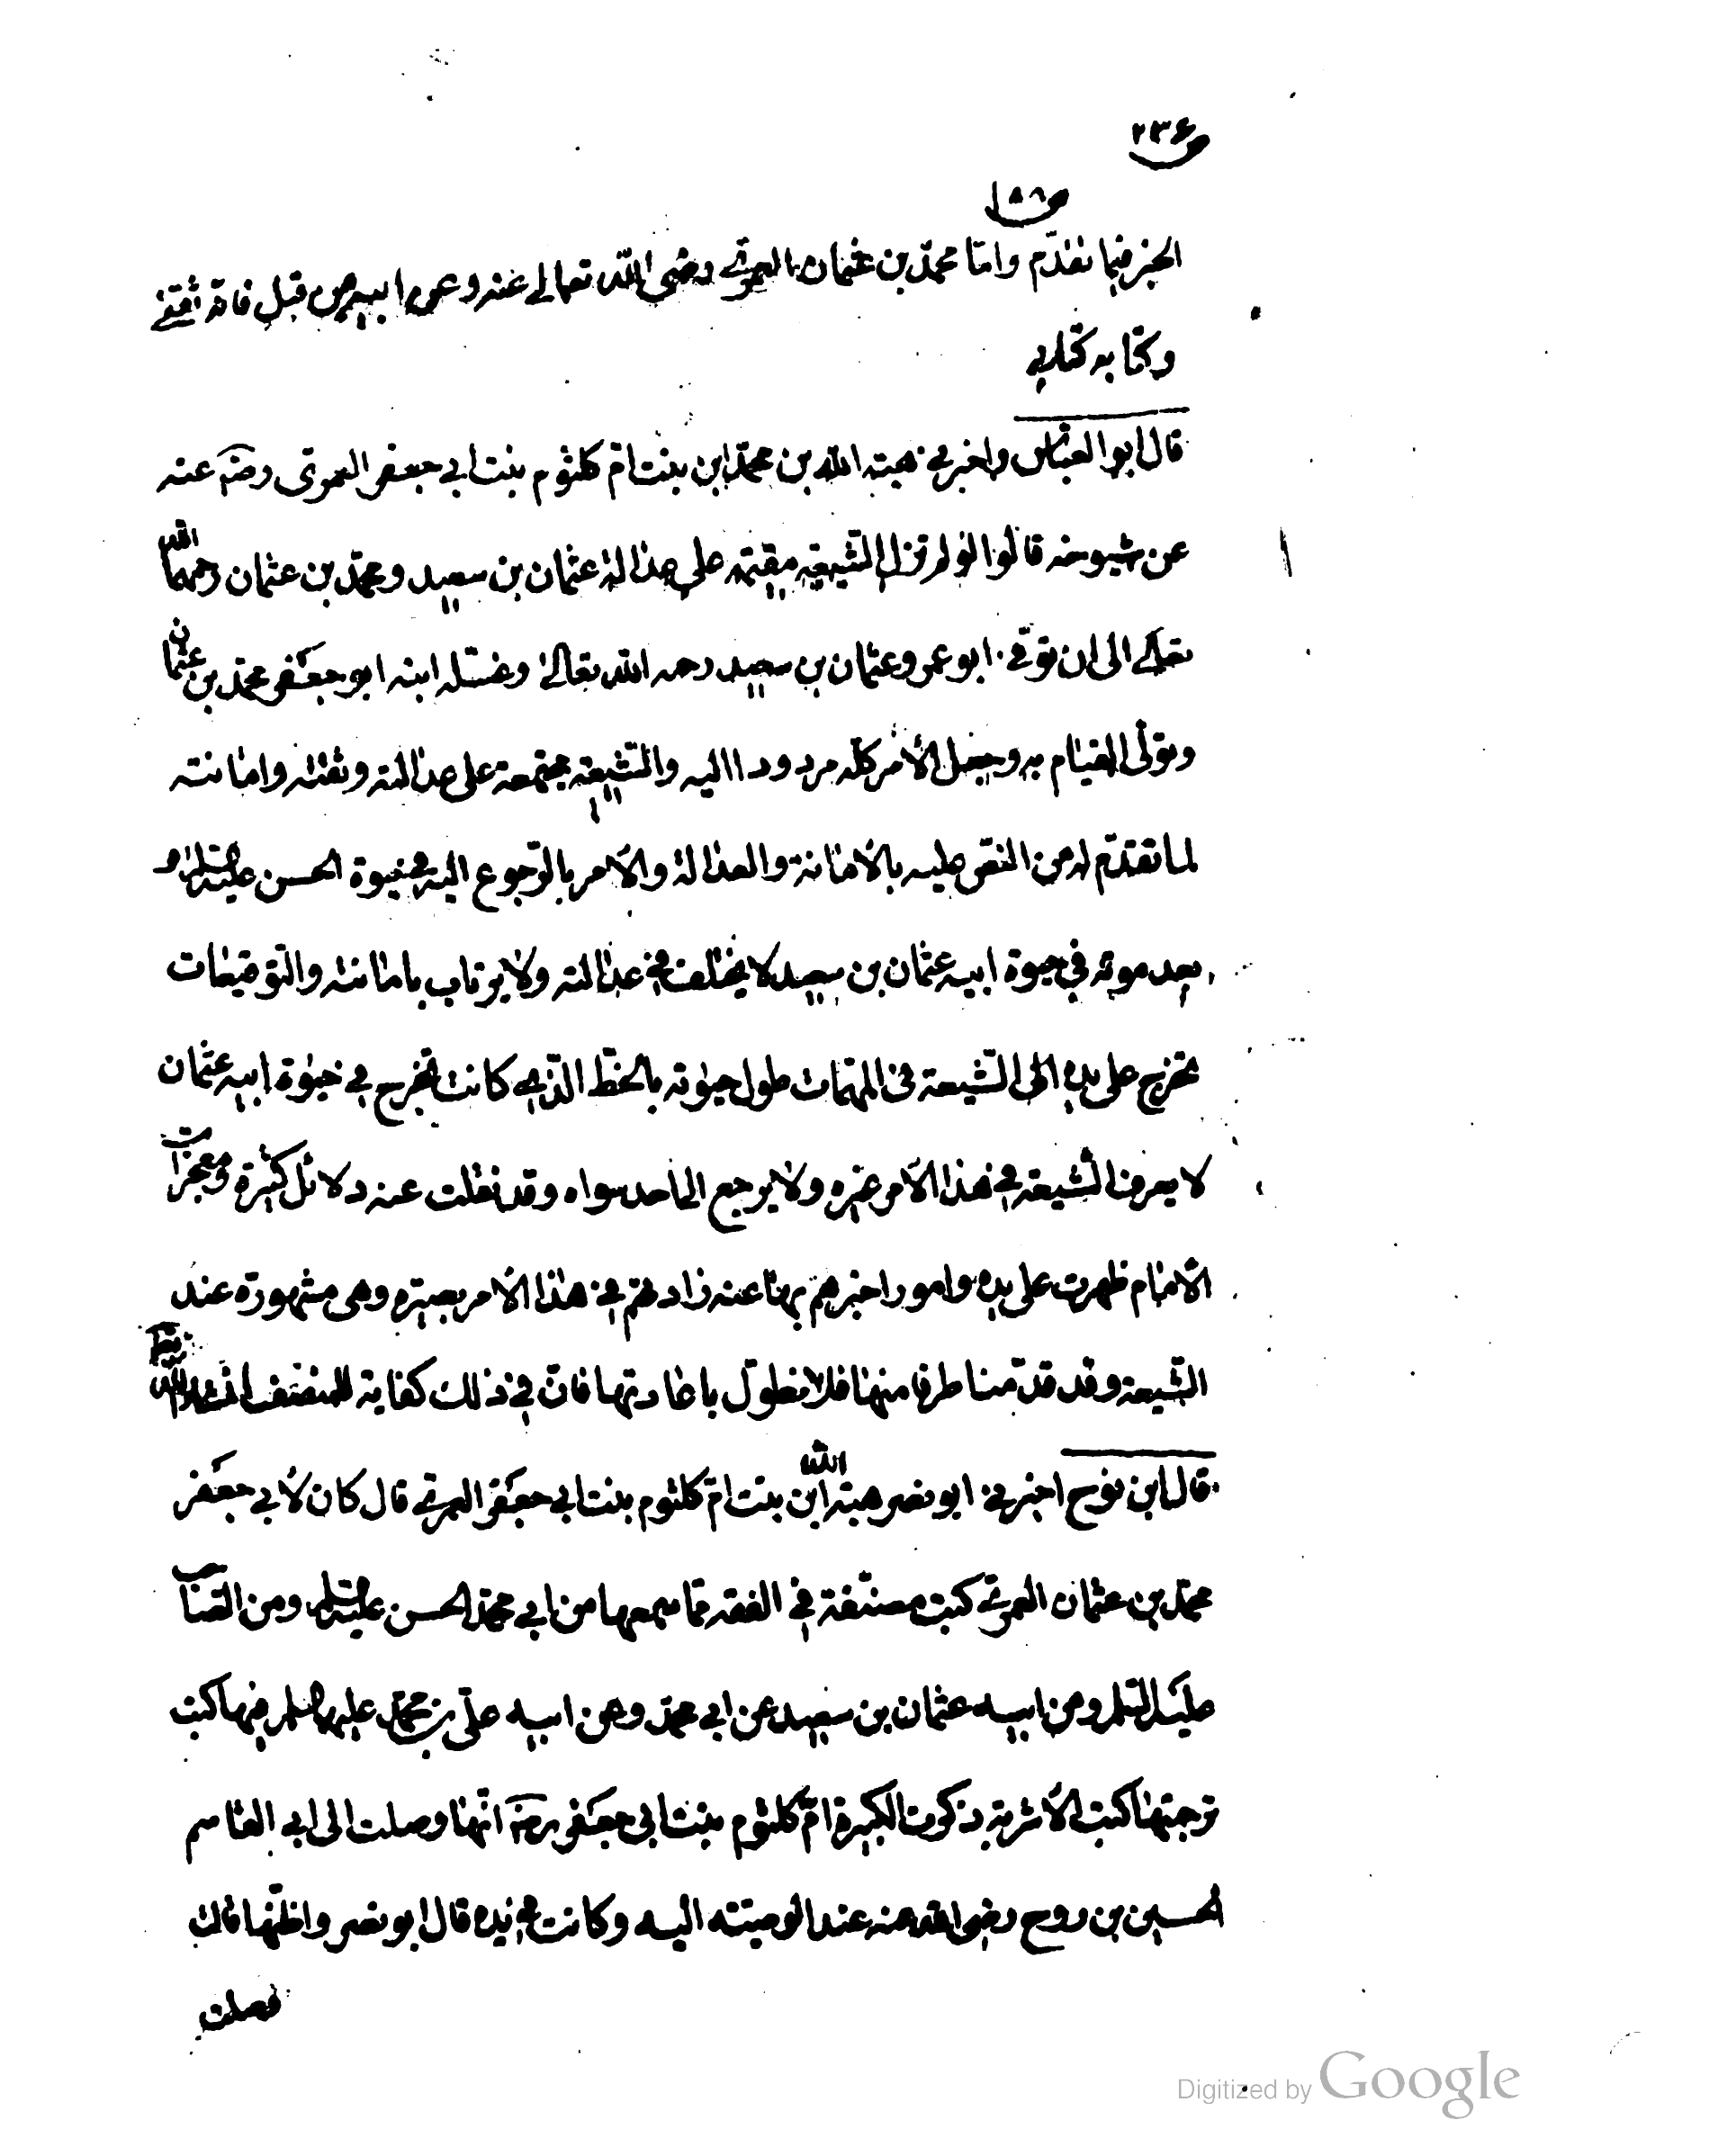 ص ٢٣٤
ص ١٥٨
الخبر فيما تقدّم وامّا محمّد بن عثمان العمرى رضى الله تعالى عنه وعن ابيه من قبل فانّه ثقتى
وكتابه كتابى
قال ابو العبّاس واخبرنى هبة الله بن محمّد ابن بنت امّ كلثوم بنت ابى جعفر العمرى رضى عنه
عن شيوخه قالوا لم تزل الشّيعة مقيمة على عدالة عثمان بن سعيد ومحمّد بن عثمان رحمهما الله
تعالى الى ان توفّى ابو عمرو عثمان بن سعيد رحمه الله تعالى وغسّله ابنه ابو جعفر محمّد بن عثمان
وتولّى القيام به وجعل الأمر كلّه مردودا اليه والشّيعة مجتمعة على عدالته وثقته وامانته
لما تقدّم له من النصّ عليه بالأمانة والعدالة والأمر بالرّجوع اليه فى حيوة الحسن عليه السّلام و
بعد موته فى حيوة ابيه عثمان بن سعيد لا يختلف فى عدالته ولا يرتاب بامانته والتوقيعات
تخرج على يده الى الشّيعة فى المهمّات طول حيوته بالخطّ الّذى كانت تخرج فى حيوة ابيه عثمان
لا يعرف الشّيعة فى هذا الأمر غيره ولا يرجع الى احد سواه وقد نقلت عنه دلائل كثيرة ومعجزات
الأمام ظهرت على يده وامور اخبرهم بها عنه زادتهم فى هذا الأمر بصيرة وهى مشهورة عند
الشّيعة وقد قدّمنا طرفا منها فلا نطول باعادتها فانّ فى ذلك كفاية للمنصف انشاء الله تعالى
قال ابن نوح اخبرنى ابو نصر هبة الله ابن بنت امّ كلثوم بنت ابى جعفر العمرى قال كان لأبى جعفر
محمّد بن عثمان العمرى كتب مصنّفة فى الفقه ممّا سمعها من ابى محمّد الحسن عليه السّلم ومن الصّاحب
عليه السّلم ومن ابيه عثمان بن سعيد عن ابى محمّد وعن ابيه علىّ بن محمّد عليهما السّلم فيها كتب
ترجمتها كتب الأشربة ذكرت الكبيرة امّ كلثوم بنت ابى جعفر رضى انّها وصلت الى ابى القاسم
الحسين بن روح رضى الله عنه عند الوصيّته اليه وكانت فى يده قال ابو نصر واظنّها قالت
وصلت
Digitized by Google